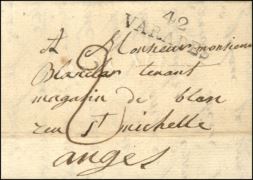 42
VARADES
A Monsieur monsieur
tenant
magasin de blan
reu st michelle
anges